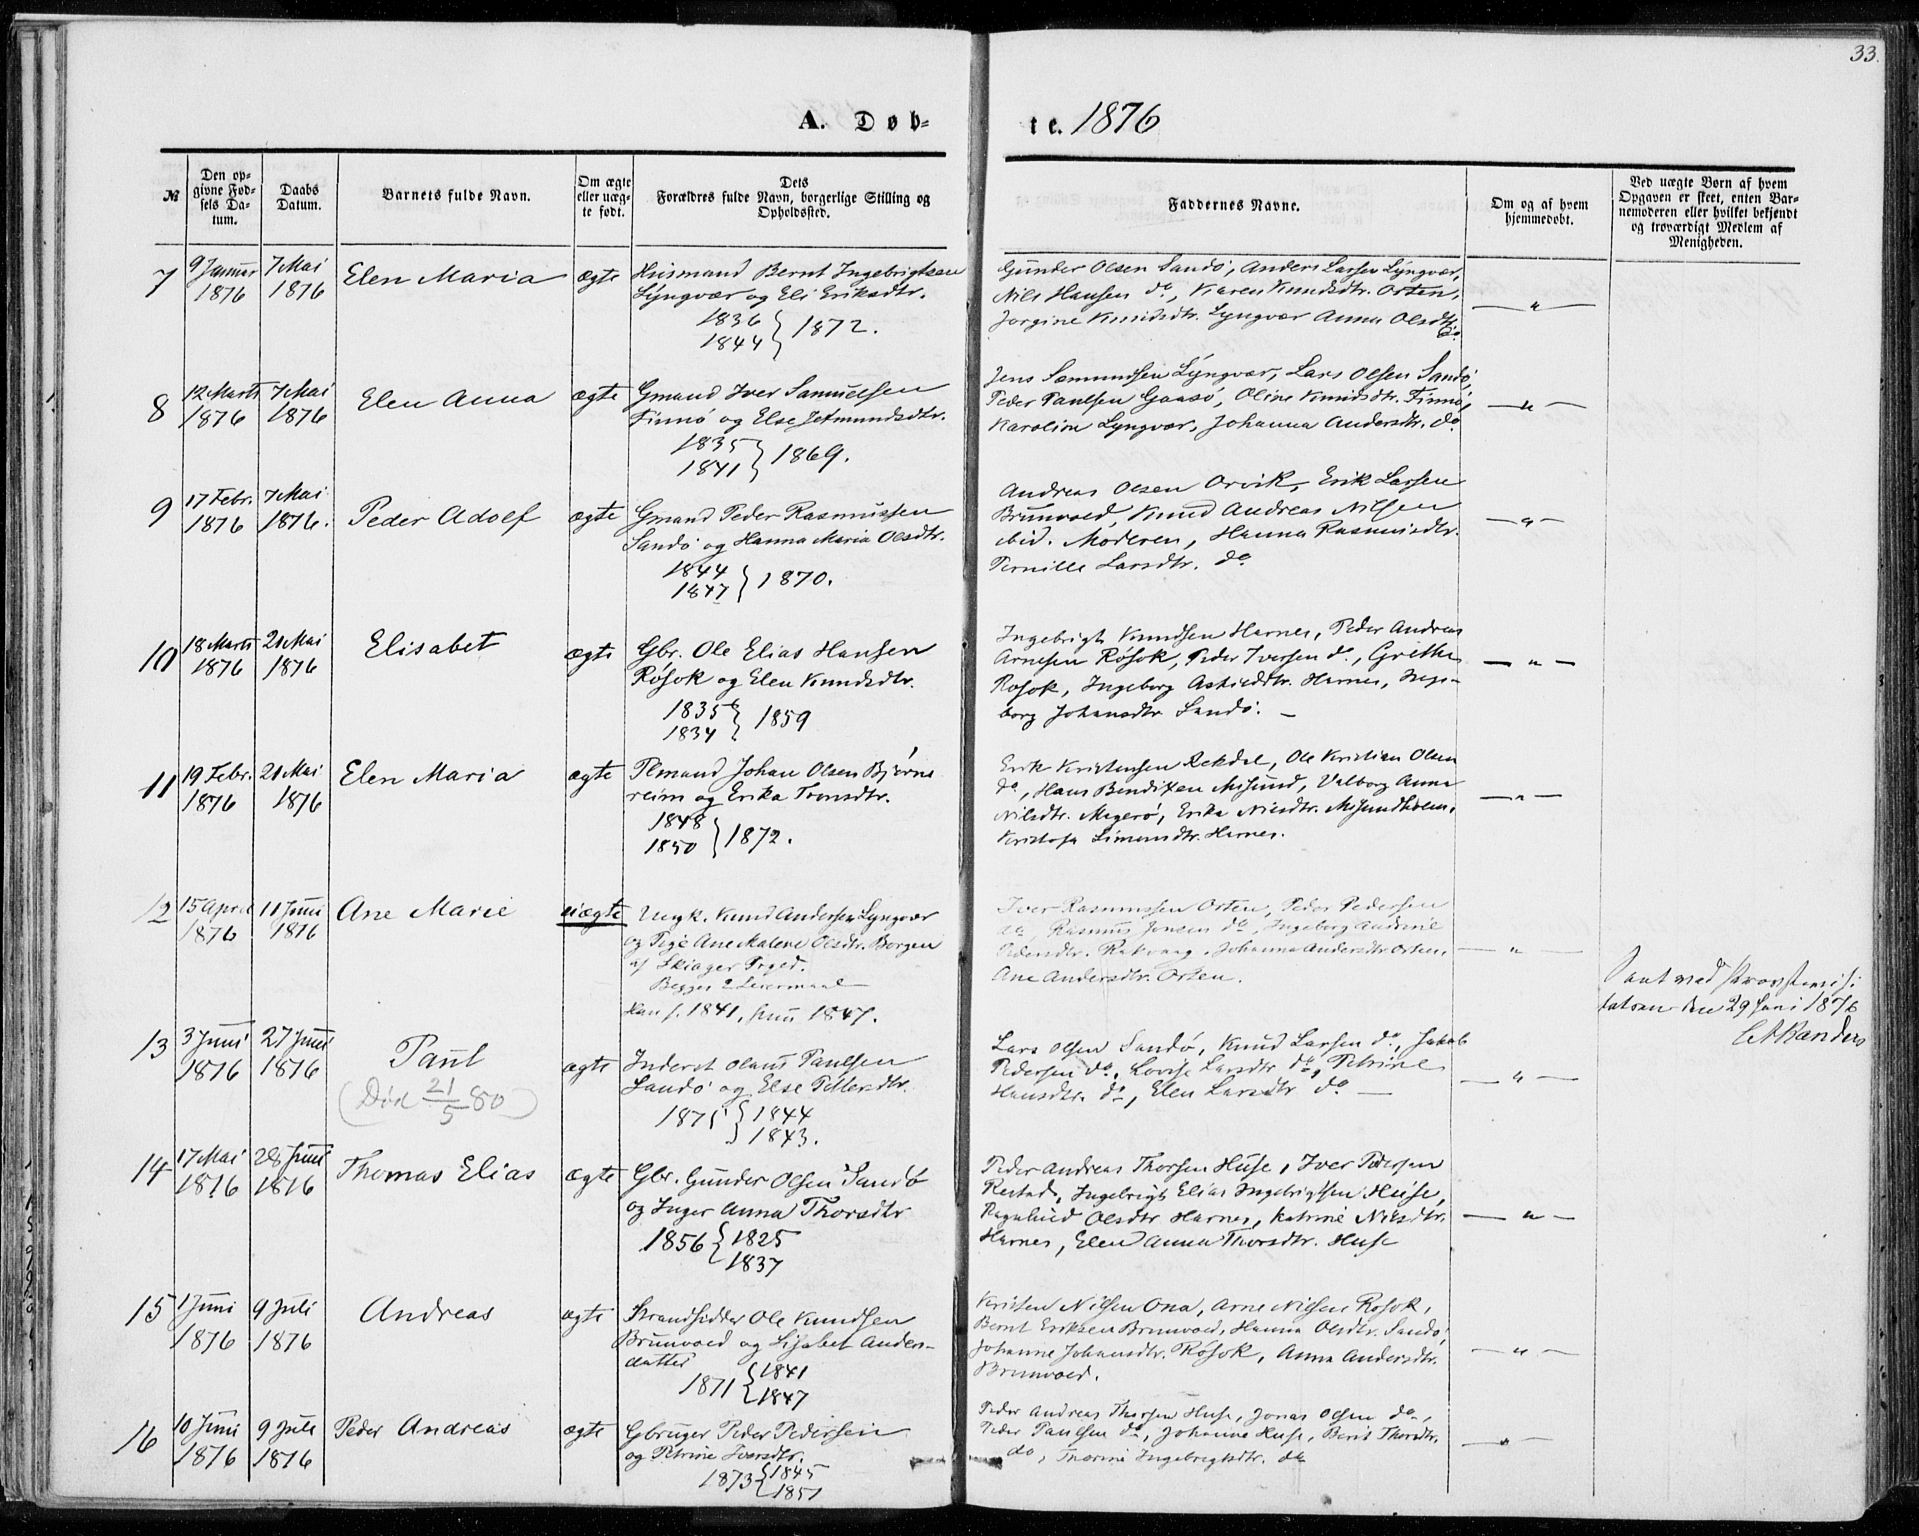 33.
A. Døb-
te. 1876
№
Den op-
givne Fød-
sels Da-
tum.
Daabs
Datum.
Barnets fulde Navn.
Om ægte
eller uæg-
te født.
Dets
Forældres fulde Navn, borgerlige Stilling og
Opholdssted.
Faddernes Navne.
Om og af hvem
hjemmedøbt.
Ved uægte Børn af hvem
Opgaven er skeet, enten Bar-
nemoderen eller hvilket bekjendt
og troværdigt Medlem af
Menigheden.
7
9 Januar
1876
7 Mai
1876
Elen Maria
ægte
Husmand Bernt Ingebrigtsen
Lyngvær og Eli Eriksdtr.
1836
1844 } 1872.
Gunder Olsen Sandö, Anders Larsen Lyngvær,
Nils Hansen do, Karen Knudsdtr. Orten,
Jørgine Knudsdtr. Lyngvær Anna Olsdtr.
do
— " —
8
12 Marts
1876
7 Mai
1876
Elen Anna
ægte
Gmand Iver Samuelsen
Finnö og Else Jetmundsdtr.
1835
1841 } 1869.
Jens Sæmundsen Lyngvær, Lars Olsen Sandö,
Peder Paulsen Gaasö, Oline Knudsdtr. Finnö,
Karoline Lyngvær, Johanna Andersdtr. do
— " —
9
17 Febr.
1876
7 Mai
1876.
Peder Adolf
ægte
Gmand Peder Rasmussen
Sandö og Hanna Maria Olsdtr.
1844
1847 } 1870.
Andreas Olsen Orvik, Erik Larsen
Brunvold, Knud Andreas Nilsen
ibid. Moderen, Hanna Rasmusdtr.
Pernille Larsdtr. do
— " —
10
18 Marts
1876
21 Mai
1876
Elisabet
ægte
Gbr. Ole Elias Hansen
Røsok og Elen Knudsdtr.
1835
1834 } 1859
Ingebrigt Knudsen Harnes, Peder Andreas
Arnesen Røsok, Peder Iversen do, Grithe
Rosok, Ingeborg Harnes, Inge-
borg Johansdtr Sandö. —
— " —
11
19 Febr.
1876
21 Mai
1876
Elen Maria
ægte
Plmand Johan Olsen Bjørne
reim og Erika Tomsdtr.
1848
1850 } 1872.
Erik Kristensen Rekdal, Ole Kristian Olsen
do, Hans Bendixen Misund, Valborg Anna
Nilsdtr. Magerö, Erika Nilsdtr. Misundholm,
Simonsdtr. Harnes.
— " —
12
15 April
1876
11 Juni
1876
Ane Marie
uægte
Ungk. Knud Andersen Lyngvær
og Pige Ane Malene Olsdtr. Borgen
af Skiager Prgld.
Begges 2 Leiermaal
Han f. 1841, hun 1847.
Iver Rasmussen Orten, Peder Pedersen
do, Rasmus Jonsen do, Ingeborg Andrine
Pedersdtr. Rakvaag, Johanna Andersdtr Orten,
Ane Andersdtr. Orten.
— " —
den 29 Juni 1876
13
3 Juni
1876
27 Juni
1876
Paul
(Død 21/5 80)
ægte
Inderst Olaus Paulsen
Sandö og Else Pettersdtr.
1875 { 1844
1843.
Lars Olsen Sandö, Knud Larsen do, Jakob
Pedersen do, Lovise Larsdtr do, Petrine
Hansdtr. do, Elen Larsdtr do —
— " —
14
17 Mai
1876
28 Juni
1876
Thomas Elias
ægte
Gbr. Gunder Olsen Sandö
og Inger Anna Thorsdtr
1856 { 1825
1837
Peder Andreas Thorsen Huse, Iver Pedersen
Restad, Ingebrigt Elias Ingebrigtsen Huse,
Ragnhild Olsdtr Harnes, Katrine Nilsdtr.
Harnes, Elen Anna Thorsdtr. Huse
— " —
15
1 Juni
1876
9 Juli
1876
Andreas
ægte
Strandsidder Ole Knudsen
Brunvold og Lisabet Anders-
datter
1871 { 1841
1847
Kristen Nilsen Ona, Arne Nilsen Rosok,
Bernt Eriksen Brunvold, Hanna Olsdtr. Sandö,
Johanne Johansdtr. Røsok, Anna Andersdtr.
Brunvold.
— " —
16
10 Juni
1876
9 Juli
1876
Peder Andreas
ægte
Gbruger Peder Pedersen
og Petrine Iversdtr.
1873 { 1845
1851
Peder Andreas Thorsen Huse, Jonas Olsen do,
Peder Paulsen do, Johanna Huse, Berit Thorsdtr.
do, Ingebrigtsdtr. do
— " —